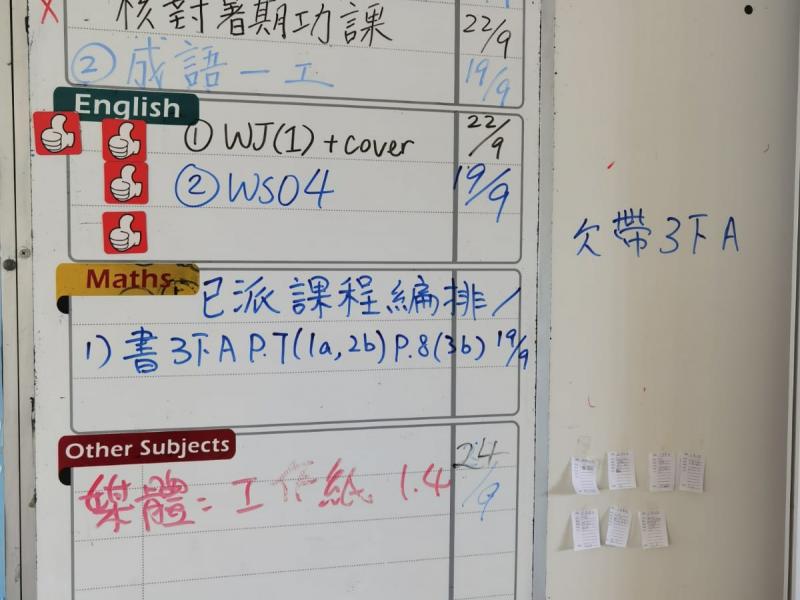 核對暑期功課 22/9
② 成語一工 19/9
English
① WJ(1) + cover 22/9
② WS04 19/9
Maths
已派課程編排/
1) 書 3下A P.7(1a, 2b) P.8(3b) 19/9
Other Subjects
媒體: 工作紙 1.4 24/9
欠帶 3下A